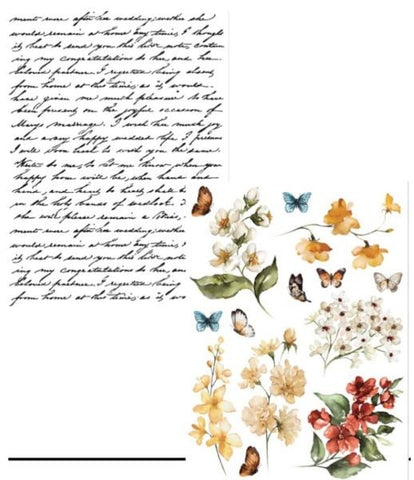 ments more after her wedding whether she
would remain a home any time; I thought
it best to send you this little note, convey
ing my congratulations to her and her
beloved partner. I regretted being absent
from home at this time; as it would
have given me much pleasure to have
been present on the joyful occasion of
Mary's marriage. I wish her much joy
and a very happy wedded life. I presume
I will soon have to wish you the same.
Write to me to let me know when your
happy home will be when hand and
hand, and heart to heart,
in the holy bonds of wedlock. I
she will please remain a
ments more after her wedding whether
would remain a home any time; I
it best to send you this little note
ing my congratulations to her and
beloved partner. I regretted being
from home at this time; as it wo